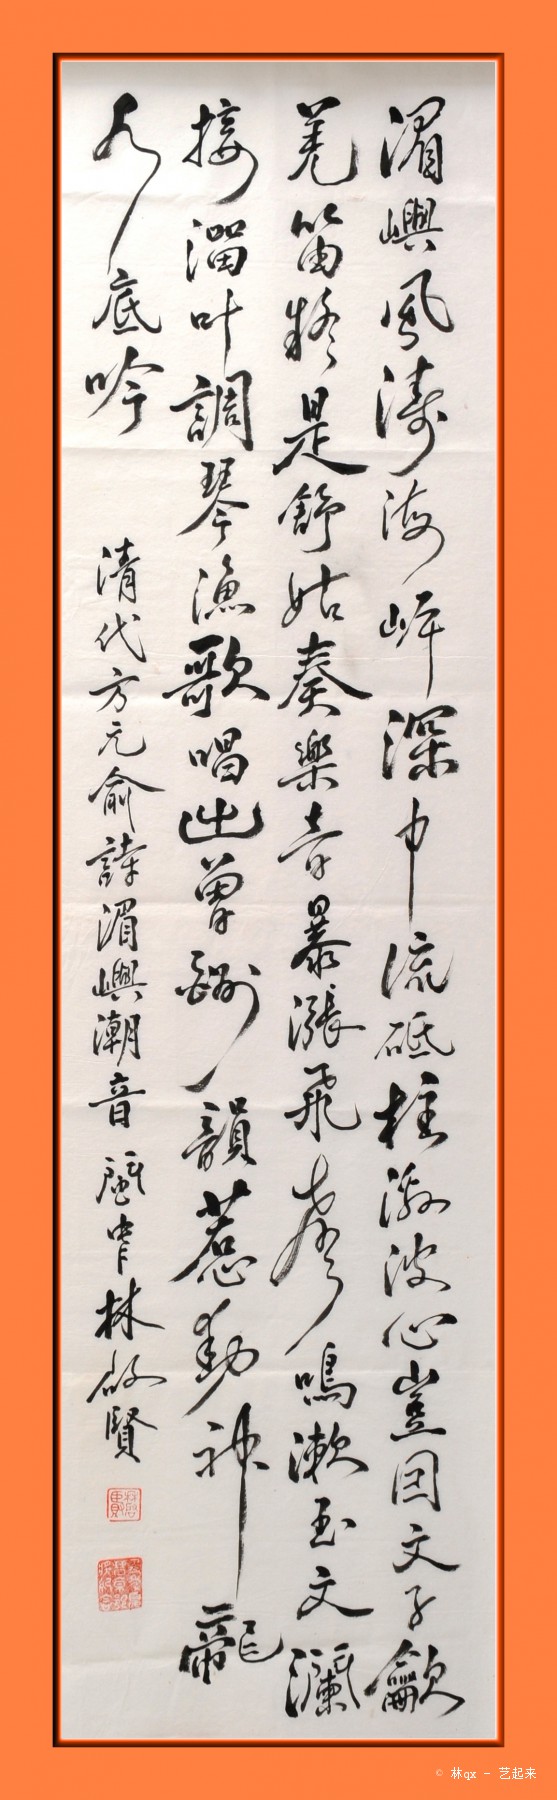 湄嶼風濤海岸深中流砥柱激波心豈因文子龡
羌笛疑是舒姑奏樂音暴漲飛聲鳴漱玉文瀾
接溜叶調琴漁歌唱出曾韻惹動神龍
水底吟
清代方元俞詩湄嶼潮音 閩中林啟賢
© 林qx - 艺起来